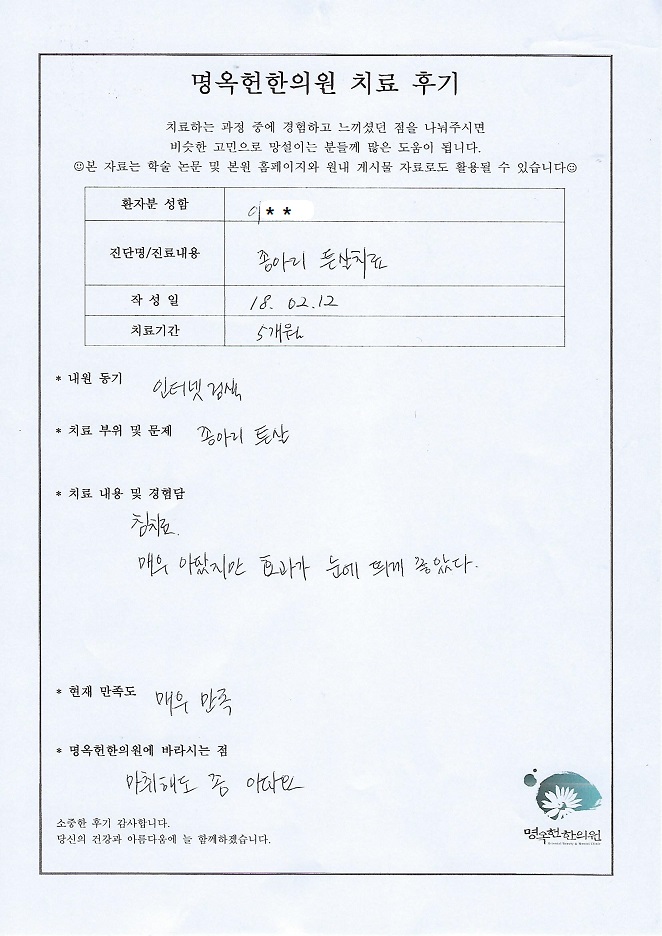 명옥헌한의원 치료 후기
치료하는 과정 중에 경험하고 느끼셨던 점을 나눠주시면
비슷한 고민으로 망설이는 분들께 많은 도움이 됩니다.
☺본 자료는 학술 논문 및 본원 홈페이지와 원내 게시물 자료로도 활용될 수 있습니다☺
환자분 성함 이**
진단명/진료내용 종아리 튼살치료
작 성 일 18. 02. 12
치료기간 5개월
* 내원 동기 인터넷 검색
* 치료 부위 및 문제 종아리 튼살
* 치료 내용 및 경험담
침치료.
매우 아팠지만 효과가 눈에 띄게 좋았다.
* 현재 만족도 매우 만족
* 명옥헌한의원에 바라시는 점
마취해도 좀 아파요
소중한 후기 감사합니다.
당신의 건강과 아름다움에 늘 함께하겠습니다.
명옥헌한의원